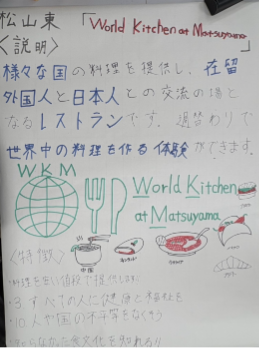 松山東 「World Kitchen at Matsuyama」
〈説明〉
様々な国の料理を提供し、在留
外国人と日本人との交流の場と
なるレストランです。週替わりで
世界中の料理を作る体験ができます。
WKM
World Kitchen
at Matsuyama
〈特徴〉
中国
・料理を安い値段で提供します
・3 すべての人に健康と福祉を
・10 人や国の不平等をなくそう